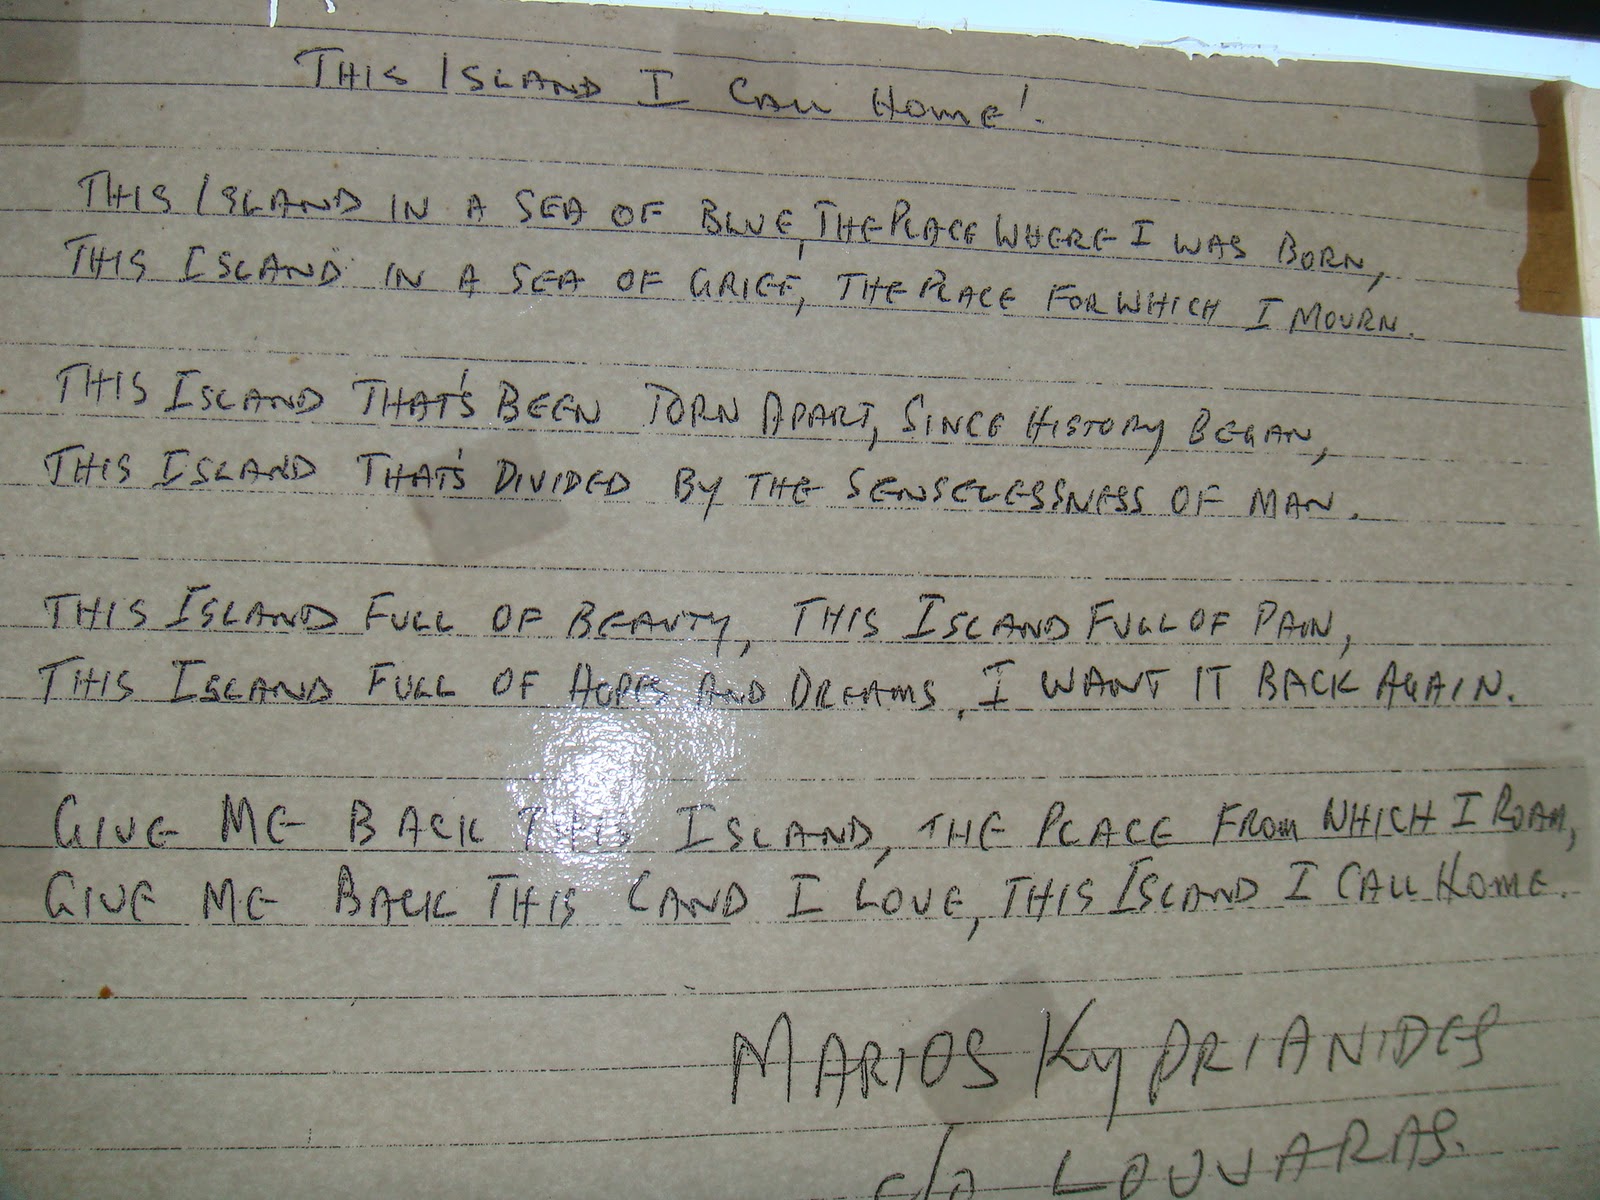 THIS ISLAND I CALL HOME!
THIS ISLAND IN A SEA OF BLUE, THE PLACE WHERE I WAS BORN,
THIS ISLAND IN A SEA OF GRIEF, THE PLACE FOR WHICH I MOURN.
THIS ISLAND THAT'S BEEN TORN APART, SINCE HISTORY BEGAN,
THIS ISLAND THAT'S DIVIDED BY THE SENSELESSNESS OF MAN.
THIS ISLAND FULL OF BEAUTY, THIS ISLAND FULL OF PAIN,
THIS ISLAND FULL OF HOPES AND DREAMS, I WANT IT BACK AGAIN.
GIVE ME BACK THIS ISLAND, THE PLACE FROM WHICH I ROAM,
GIVE ME BACK THIS LAND I LOVE, THIS ISLAND I CALL HOME.
MARIOS KYPRIANIDES
c/o LOUVARAS.